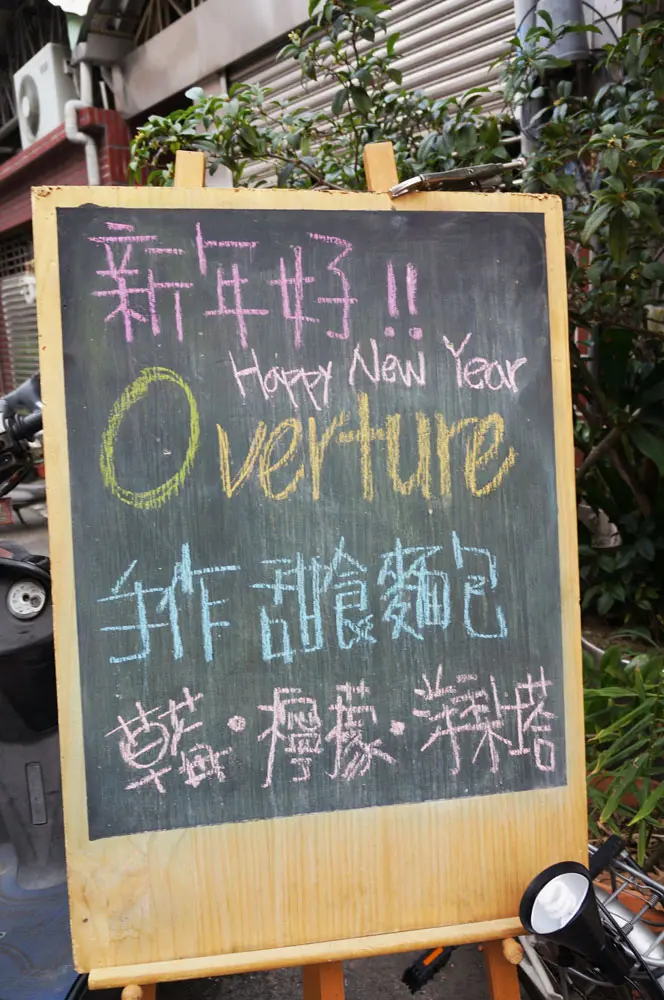 新年好!!
Happy New Year
Overture
手作 甜食麵包
草莓·檸檬·洋梨塔